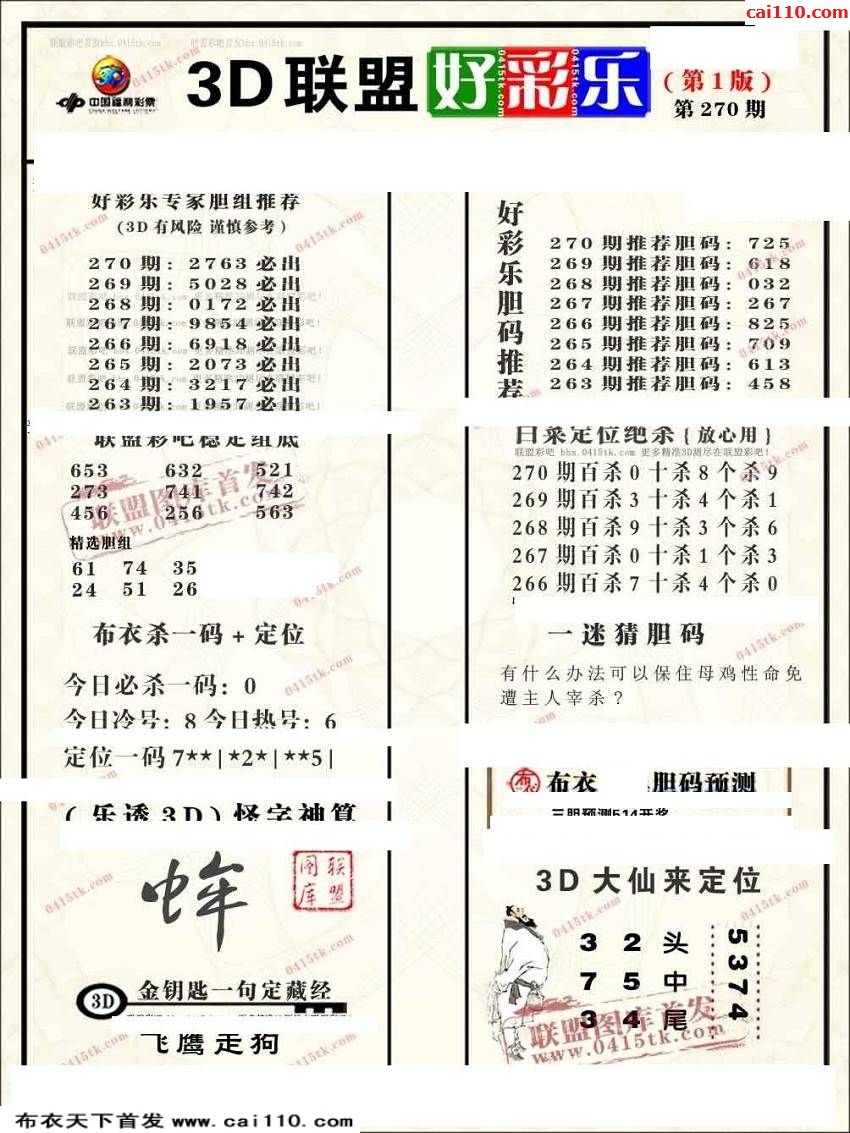 cai110.com
联盟彩吧首发bbs.0415tk.com
中国福利彩票
CHINA WELFARE LOTTERY
3D联盟好彩乐
0415tk.com
(第1版)
第270期
好彩乐专家胆组推荐
(3D有风险 谨慎参考)
270期: 2763必出
269期: 5028必出
268期: 0172必出
267期: 9854必出
266期: 6918必出
265期: 2073必出
264期: 3217必出
263期: 1957必出
联盟彩吧稳定组底
653 632 521
273 741 742
456 256 563
联盟图库首发
www.0415tk.com
精选胆组
61 74 35
24 51 26
布衣杀一码+定位
今日必杀一码: 0
今日冷号: 8 今日热号: 6
定位一码 7**|*2*|**5|
(乐透3D)怪字神算
联盟图库
3D 金钥匙一句定藏经
飞鹰走狗
好彩乐胆码推荐
270期推荐胆码: 725
269期推荐胆码: 618
268期推荐胆码: 032
267期推荐胆码: 267
266期推荐胆码: 825
265期推荐胆码: 709
264期推荐胆码: 613
263期推荐胆码: 458
白菜定位绝杀{放心用}
联盟彩吧 bbs.0415tk.com 更多精准3D图尽在联盟彩吧!
270期百杀0十杀8个杀9
269期百杀3十杀4个杀1
268期百杀9十杀3个杀6
267期百杀0十杀1个杀3
266期百杀7十杀4个杀0
一迷猜胆码
有什么办法可以保住母鸡性命免
遭主人宰杀?
布衣 胆码预测
三胆预测514开奖
3D大仙来定位
3 2 头
7 5 中
3 4 尾
5374
联盟图库首发
www.0415tk.com
布衣天下首发 www.cai110.com